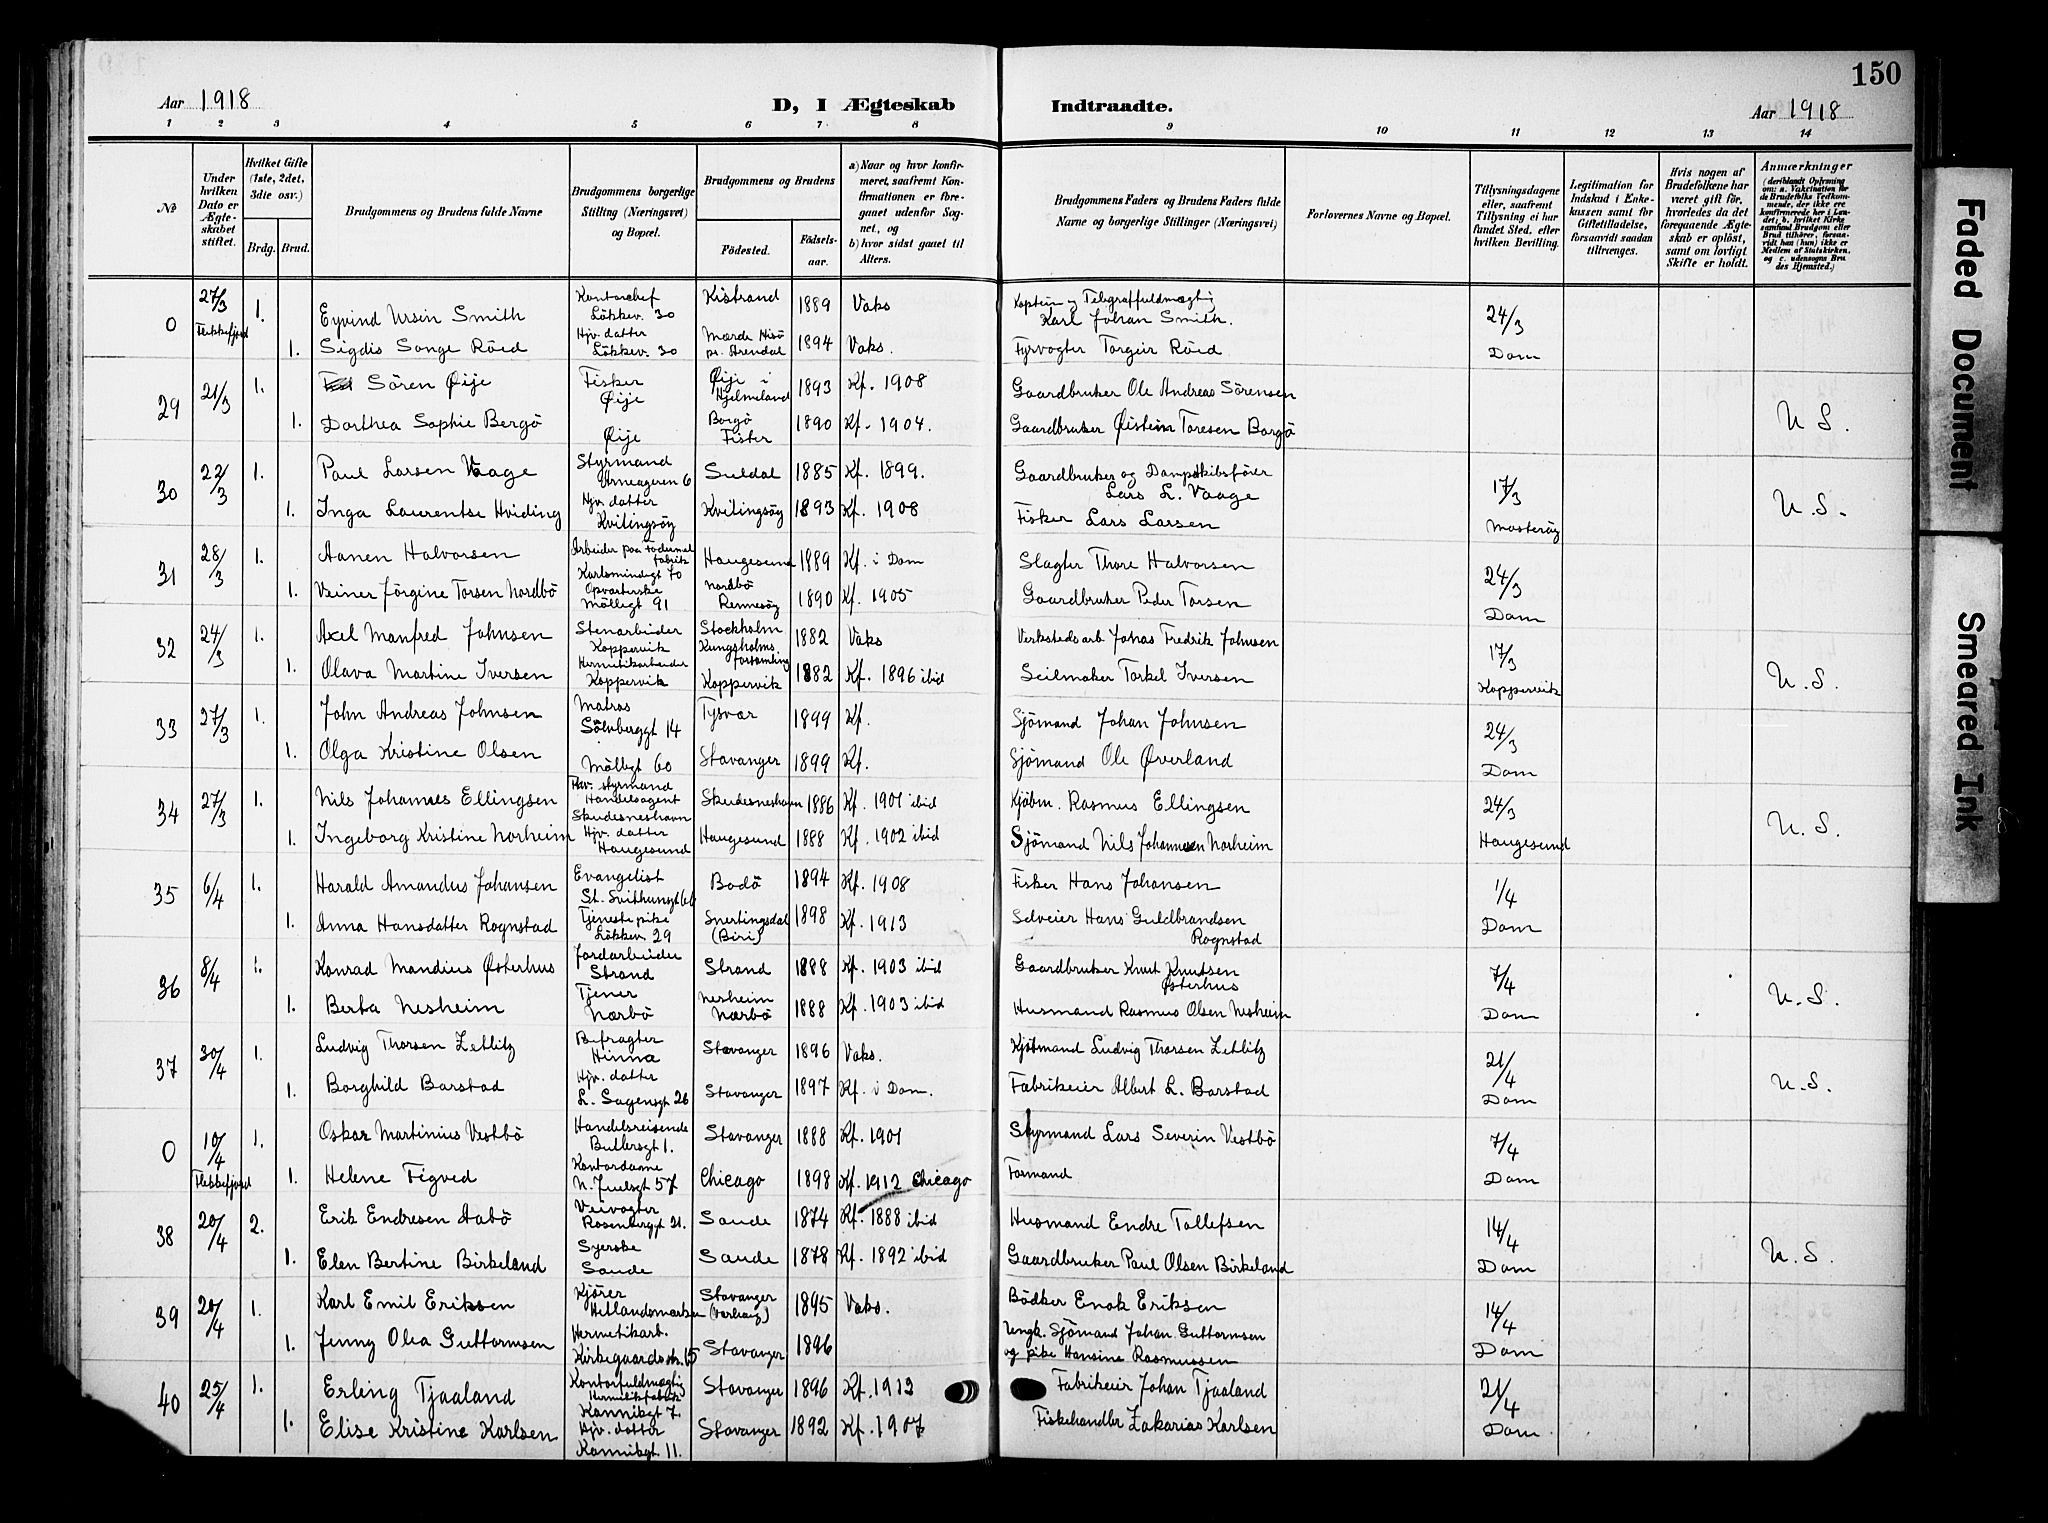 150
Aar 1918
D, I Ægteskab
Indtraadte.
Aar 1918
1 2 3 4 5 6 7 8 9 10 11 12 13 14
No
Under hvilken Dato er Ægteskabet stiftet.
Hvilket Gifte (1ste, 2det, 3die osv.)
Brdg. Brud.
Brudgommens og Brudens fulde Navne
Brudgommens borgerlige Stilling (Næringsvei) og Bopæl.
Brudgommens og Brudens
Födested.
Födselsaar.
a) Naar og hvor konfirmeret, saafremt Konfirmationen er foregaaet udenfor Sognet, og
b) hvor sidst gaaet til Alters.
Brudgommens Faders og Brudens Faders fulde Navne og borgerlige Stillinger (Næringsvei)
Forlovernes Navne og Bopæl.
Tillysningsdagene eller, saafremt Tillysning ei har fundet Sted, efter hvilken Bevilling.
Legitimation for Indskud i Enkekassen samt for Giftetilladelse, forsaavidt saadan tiltrænges.
Hvis nogen af Brudefolkene har været gift för, hvorledes da det foregaaende Ægteskab er oplöst, samt om lovligt Skifte er holdt.
Anmærkninger
(deriblandt Oplysning om: a. Vakcination for de Brudefolks Vedkommende, der ikke ere konfirmerede her i Landet; b. hvilket Kirkesamfund Brudgom eller Brud tilhörer, forsaavidt han (hun) ikke er Medlem af Statskirken, og c. udensogns Brudes Hjemsted.)
0 27/3 1. Eyvind Ursin Smith Kontorchef Lökkev. 30 Kistrand 1889 Vaks Kaptein og Telegraffuldmægtig Karl Johan Smith. 24/3
Flekkefjord 1. Sigdis Songe Röed Hjv. datter Lökkev. 30 Mærde Hisö pr. Arendal 1894 Vaks. Fyrvogter Torgeir Röed Dom
29 21/3 1. Sören Øije Fisker Øije Øije i Hjelmeland 1893 Kf. 1908 Gaardbruker Ole Andreas Sörensen
1. Dorthea Sophie Bergö Øije Borgö Fister 1890 Kf. 1904. Gaardbruker Øistein Toresen Borgö U S.
30 22/3 1. Paul Larsen Vaage Styrmand Urneageren 6 Suldal 1885 Kf. 1899. Gaardbruker og Dampskibsförer Lars L. Vaage 17/3
1. Inga Laurentse Hviding Hjv. datter Kvitingsöy Kvitingsöy 1893 Kf. 1908 Fisker Lars Larsen Mosteröy U.S.
31 28/3 1. Aanen Halvorsen Arbeider paa fabrik Karlsmindegt 70 Haugesund 1889 Kf. i Dom Slagter Thore Halvorsen 24/3
1. Veiner Jörgine Torsen Nordbö Opvarterske Möllegt 91 Nordbö Rennesöy 1890 Kf. 1905 Gaardbruker Peder Torsen Dom
32 24/3 1. Axel Manfred Johnsen Stenarbeider Koppervik Stockholm Kungsholms forsamling 1882 Vaks Verkstedsarb Jonas Fredrik Johnsen 17/3
1. Olava Martine Iversen Hermetikarbeider Koppervik Koppervik 1882 Kf. 1896 ibid Seilmaker Torkel Iversen Koppervik U.S.
33 27/3 1. John Andreas Johnsen Matros Sölvberggt 14 Tysvær 1899 Kf. Sjömand Johan Johnsen 24/3
1. Olga Kristine Olsen Möllegt 60 Stavanger 1899 Kf. Sjömand Ole Øverland Dom
34 27/3 1. Nils Johannes Ellingsen Hav. styrmand Handelsagent Skudesneshavn Skudesneshavn 1886 Kf. 1901 ibid Kjöbm. Rasmus Ellingsen 24/3
1. Ingeborg Kristine Norheim Hjv. datter Haugesund Haugesund 1888 Kf. 1902 ibid Sjömand Nils Johannesen Norheim Haugesund U.S.
35 6/4 1. Harald Amandus Johansen Evangelist St. Svithunsgt 66 Bodö 1894 Kf. 1908 Fisker Hans Johansen 1/4
1. Anna Hansdatter Rognstad Tjenestepike Lökkev 29 Snertingsdal (Biri) 1898 Kf. 1913 Selveier Hans Guldbrandsen Rognstad Dom
36 8/4 1. Konrad Mandius Østerhus Jordarbeider Strand Strand 1888 Kf. 1903 ibid Gaardbruker Knut Knutsen Østerhus 7/4
1. Berta Nesheim Tjener Nærbö Nesheim Nærbö 1888 Kf. 1903 ibid Husmand Rasmus Olsen Nesheim Dom U.S.
37 30/4 1. Ludvig Thorsen Zetlitz Befragter Hinna Stavanger 1896 Vaks. Kjöbmand Ludvig Thorsen Zetlitz 21/4
1. Borghild Barstad Hjv. datter L. Sagensgt 26 Stavanger 1897 Kf. i Dom. Fabrikeier Albert L. Barstad Dom U.S.
0 10/4 1. Oskar Martinius Vestbö Handelsreisende Bullersgt 1. Stavanger 1888 Kf. 1901 Styrmand Lars Severin Vestbö 7/4
Flekkefjord 1. Helene Figved Kontordame N. Juelsgt 57 Chicago 1898 Kf. 1912 Chicago Formand Dom
38 20/4 2. Erik Endresen Aabö Veivogter Rosenberggt 21. Saude 1874 Kf. 1888 ibid Husmand Endre Tollefsen 14/4
1. Elen Bertine Birkeland Syerske Saude Saude 1878 Kf. 1892 ibid Gaardbruker Paul Olsen Birkeland Dom U.S.
39 20/4 1. Karl Emil Eriksen Kjörer Hillandsmarken Stavanger 1895 Vaks. Bödker Enok Eriksen 14/4
1. Jenny Olea Guttormsen Hermetikarb. Kirkegaardsstr. 65 Stavanger 1896 Ungk. Sjömand Johan Guttormsen og pike Hansine Rasmussen Dom
40 25/4 1. Erling Tjaaland Kontorfuldmægtig Hermetikfabrik Kannikgt 7. Stavanger 1896 Kf. 1912 Fabrikeier Johan Tjaaland 21/4
1. Elise Kristine Karlsen Hjv. datter Kannikgt. 11. Stavanger 1892 Kf. 1907 Fiskehandler Zakarias Karlsen Dom
Faded Document
Smeared Ink